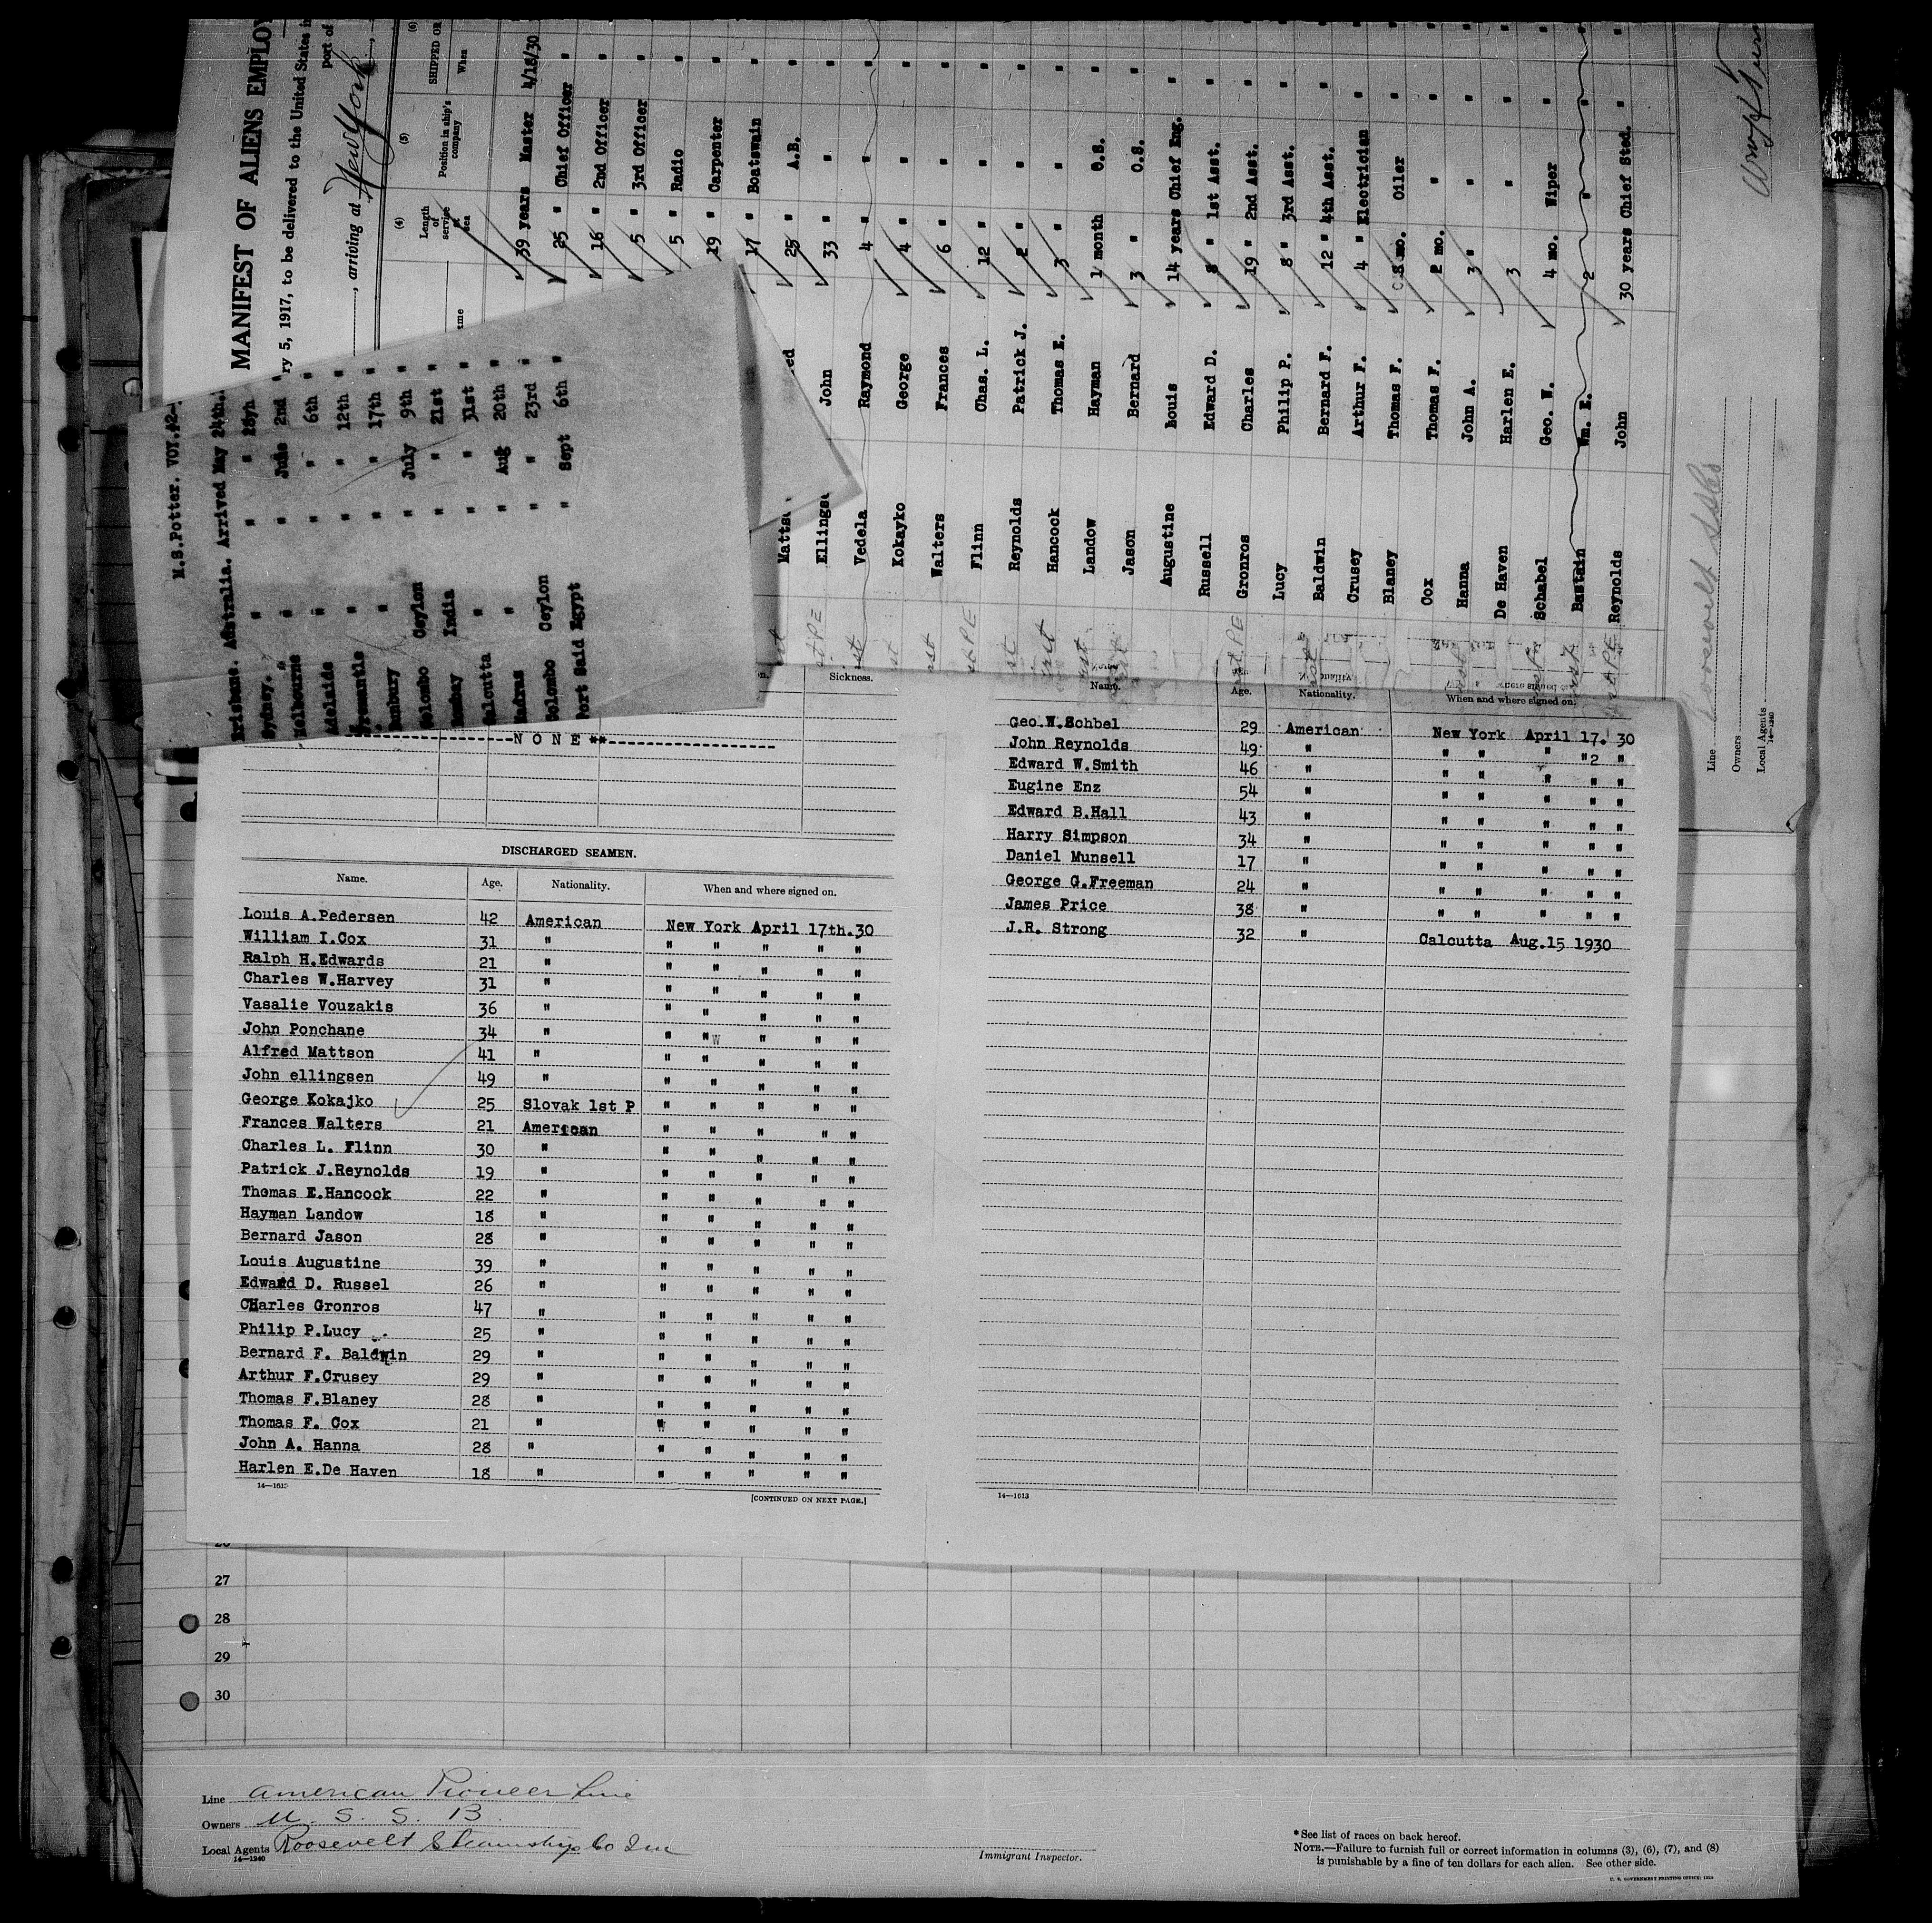 MANIFEST OF ALIENS EMPLOY
ry 5, 1917, to be delivered to the United States
port of
, arriving at New York,
(4) (5) (6)
Length of service at sea
Position in ship's company
SHIPPED OR
When
39 years Master 4/18/30
25 " Chief Officer "
16 " 2nd Officer "
5 " 3rd Officer "
5 " Radio "
19 " Carpenter "
17 " Boatswain "
Matts ed 25 " A.B. "
Ellings John 33 " "
Vedela Raymond 4 " "
Kokayko George 4 " " "
Walters Frances 6 " " "
Flinn Chas. L. 12 " " "
Reynolds Patrick J. 2 " " "
Hancock Thomas E. 3 " " "
Landow Hayman 1 month O.S. "
Jason Bernard 3 " O.S. "
Augustine Louis 14 years Chief Eng. "
Russell Edward D. 8 " 1st Asst. "
Gronros Charles 19 " 2nd Asst. "
Lucy Philip P. 8 " 3rd Asst. "
Baldwin Bernard F. 12 " 4th Asst. "
Crusey Arthur F. 4 " Electrician "
Blaney Thomas F. 8 mo. Oiler "
Cox Thomas F. 2 mo. " "
Hanna John A. 3 " " "
De Haven Harlen E. 3 " "
Schabel Geo. W. 4 mo. Wiper "
Bastain Wm. E. 2 " "
Reynolds John 30 years Chief Sted. "
Line Roosevelt
Owners
Local Agents
14—1240
M.S.Potter. VOY.12-
Brisbane. Australia. Arrived May 24th.
Sydney. " " " 28yh "
Melbourne " " June 2nd "
Adelaide " " " 6th "
Fremantle " " " 12th "
Bunbury " " " 17th "
Colombo Ceylon " July 9th "
Bombay India " " 21st "
Calcutta " " " 31st "
Madras " " Aug 20th "
Colombo Ceylon " " 23rd "
Port Said Egypt " Sept 6th "
Sickness.
NONE**
DISCHARGED SEAMEN.
Name. Age. Nationality. When and where signed on.
Louis A.Pedersen 42 American New York April 17th.30
William I.Cox 31 " " " " " "
Ralph H.Edwards 21 " " " " " "
Charles W.Harvey 31 " " " " " "
Vasalie Vouzakis 36 " " " " " "
John Ponchane 34 " " " " " "
Alfred Mattson 41 " " " " " "
John ellingsen 49 " " " " " "
George Kokajko 25 Slovak 1st P " " " " "
Frances Walters 21 American " " " " "
Charles L. Flinn 30 " " " " " "
Patrick J.Reynolds 19 " " " " " "
Thomas E.Hancock 22 " " " " " "
Hayman Landow 18 " " " " " "
Bernard Jason 28 " " " " " "
Louis Augustine 39 " " " " " "
Edward D. Russel 26 " " " " " "
CHarles Gronros 47 " " " " " "
Philip P.Lucy 25 " " " " " "
Bernard F. Baldwin 29 " " " " " "
Arthur F.Crusey 29 " " " " " "
Thomas F.Blaney 28 " " " " " "
Thomas F. Cox 21 " " " " " "
John A. Hanna 28 " " " " " "
Harlen E.De Haven 18 " " " " " "
14—1613
[CONTINUED ON NEXT PAGE.]
Name. Age. Nationality. When and where signed on.
Geo.W.Schbel 29 American New York April 17. 30
John Reynolds 49 " " " " "2 "
Edward W.Smith 46 " " " " " "
Eugine Enz 54 " " " " " "
Edward B.Hall 43 " " " " " "
Harry Simpson 34 " " " " " "
Daniel Munsell 17 " " " " " "
George G.Freeman 24 " " " " " "
James Price 38 " " " " " "
J.R. Strong 32 " Calcutta Aug.15 1930
14—1613
27
28
29
30
Line American Pioneer Line
Owners U. S. S. B.
Local Agents Roosevelt Steamship Co Inc
14—1240
Immigrant Inspector.
*See list of races on back hereof.
NOTE.—Failure to furnish full or correct information in columns (3), (6), (7), and (8)
is punishable by a fine of ten dollars for each alien. See other side.
U. S. GOVERNMENT PRINTING OFFICE